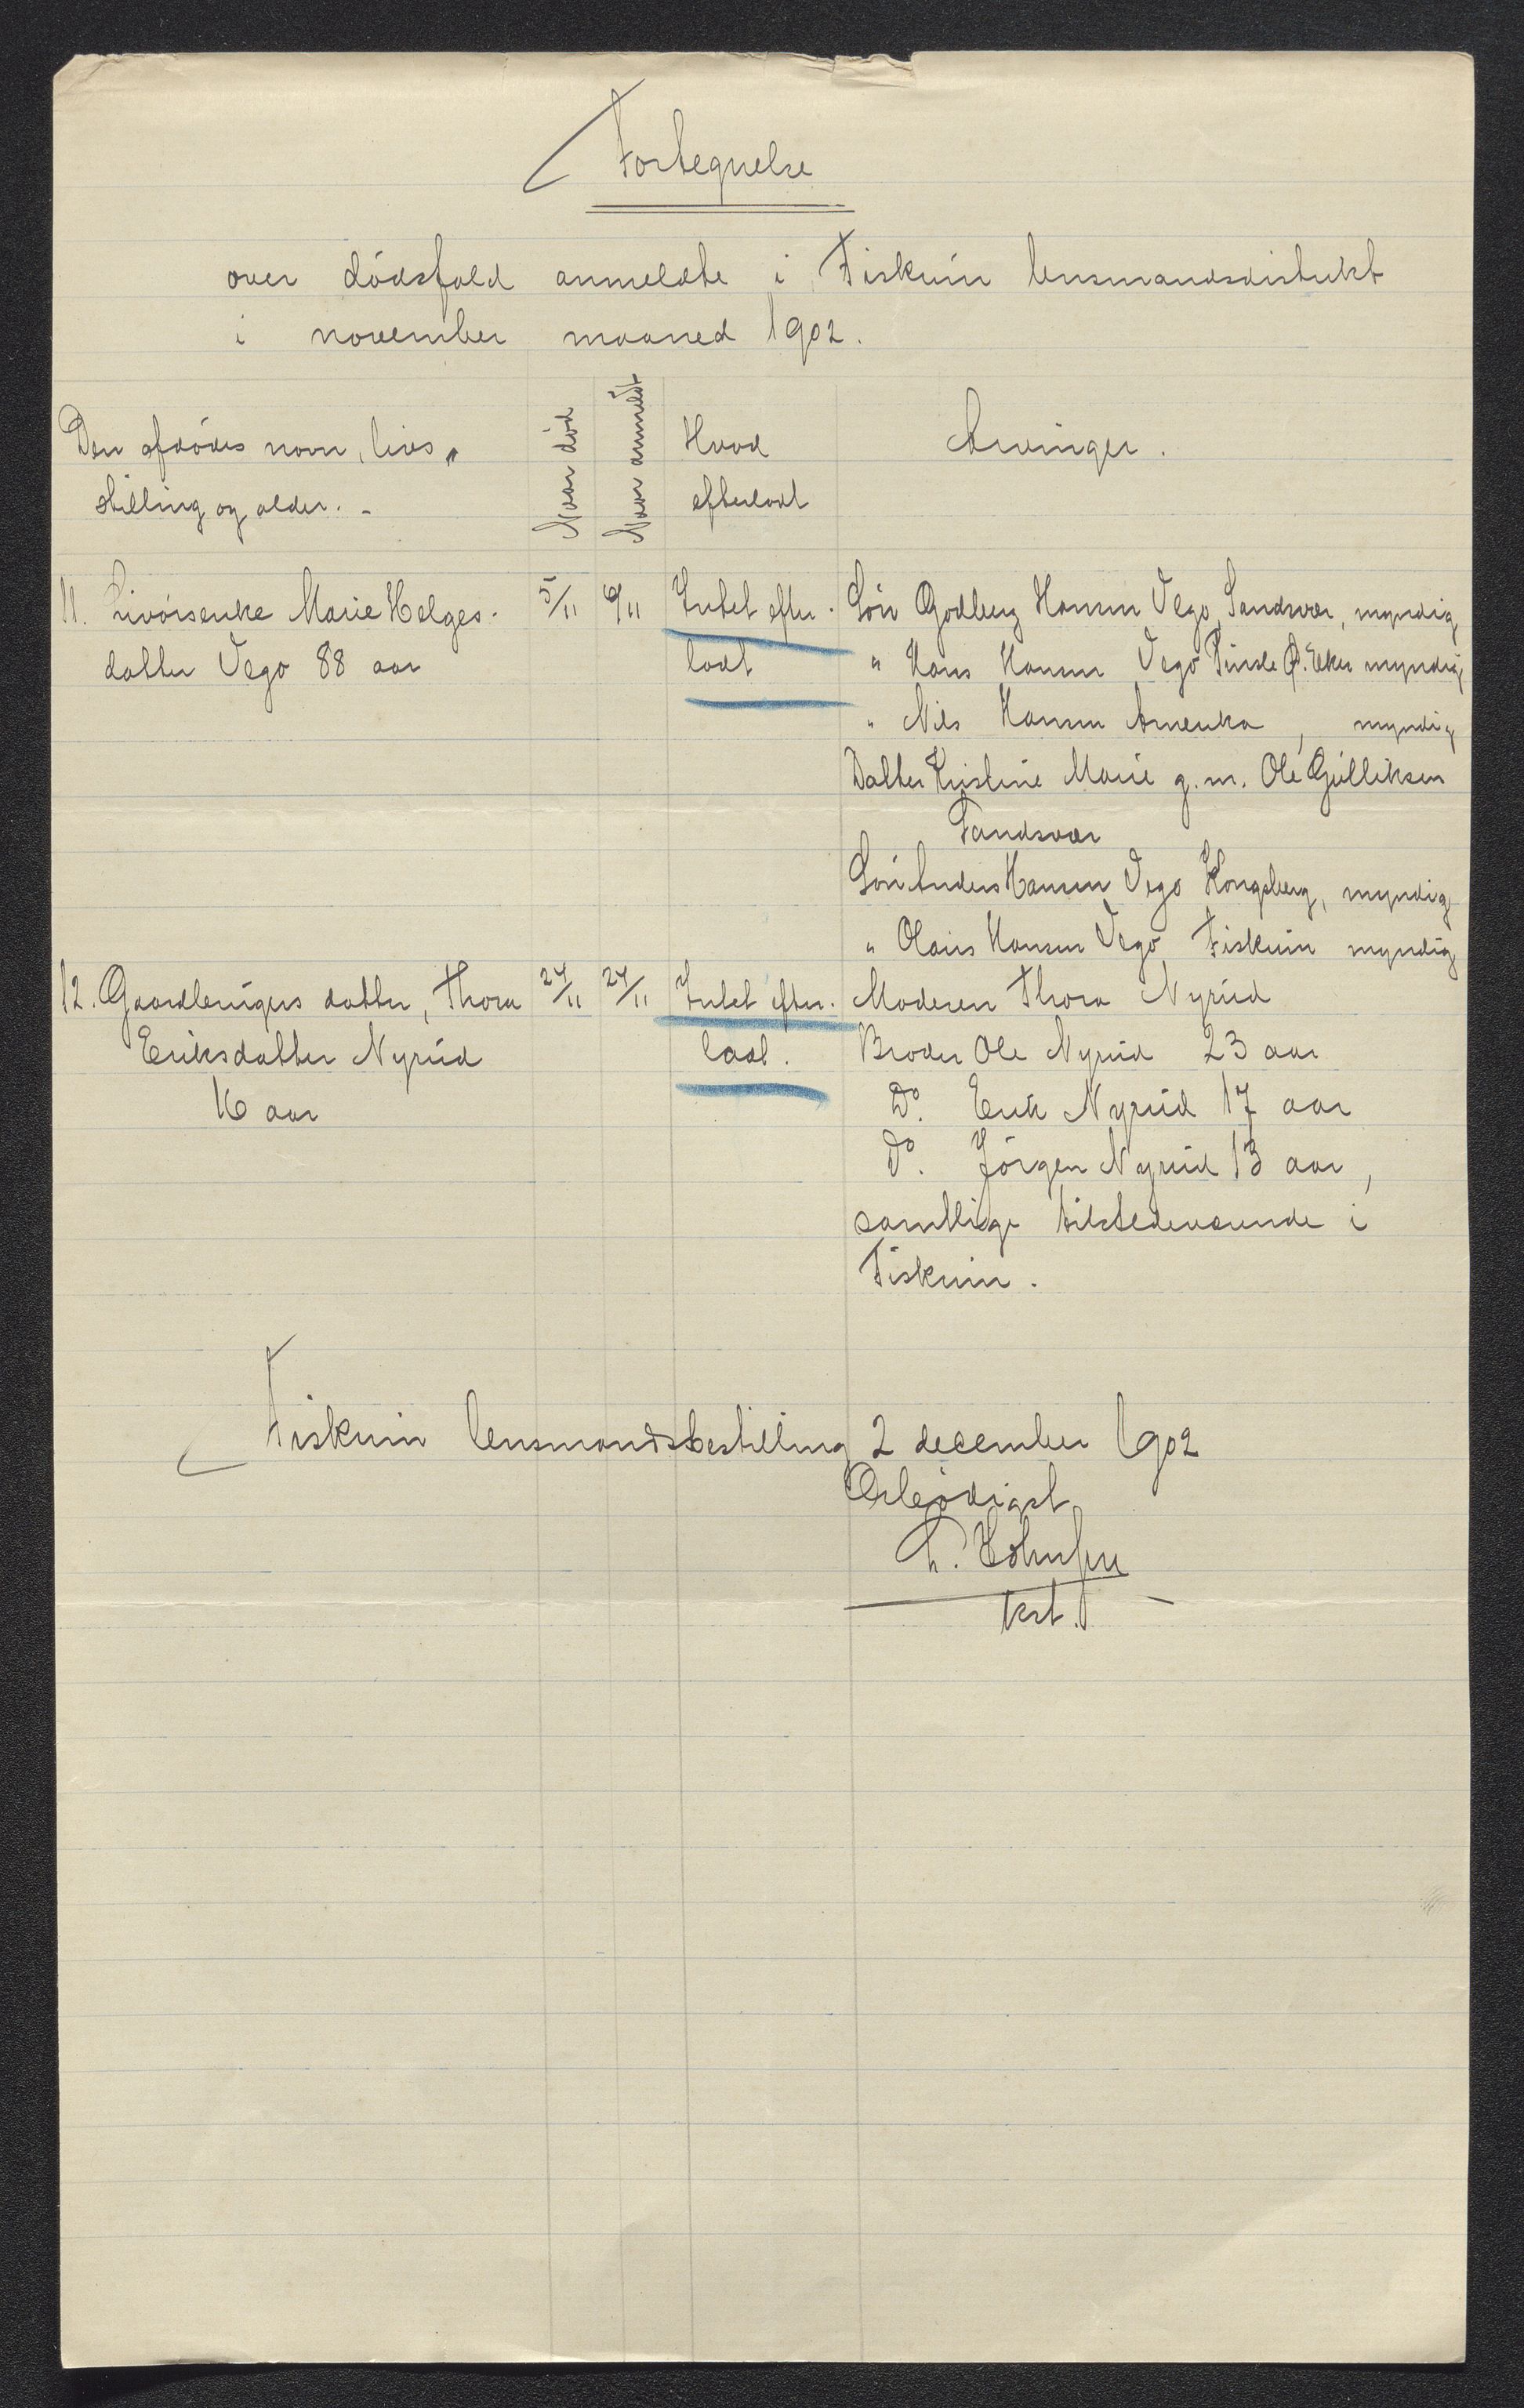 Fortegnelse
over dödsfald anmeldte i Fiskum lensmandsdistrikt
i november maaned 1902.
Den afdödes navn, livs-
stilling og alder. -
Naar död
Naar anmeldt
Hvad
efterladt
Arvinger.
11. Livörsenke Marie Helges-
datter Vego 88 aar
5/11 6/11
Intet efter-
ladt
Sön Godberg Hansen Vego, Sandsvær, myndig
" Hans Hansen Vego Ø. Eker myndig
" Nils Hansen Amerika, myndig
Datter Kristine Marie g. m. Ole Gulliksen
Sandsvær
Sön Anders Hansen Vego Kongsberg, myndig
" Olaus Hansen Vego, Fiskum myndig
12. Gaardbrugers datter, Thora
Eriksdatter Nyrud
16 aar
24/11 24/11
Intet efter-
ladt.
Moderen Thora Nyrud
Broder Ole Nyrud 23 aar
Do. Erik Nyrud 17 aar
Do. Jörgen Nyrud 13 aar,
samtlige tilstedeværende i
Fiskum.
Fiskum lensmandsbestilling 2 december 1902
Ærbødigst
kst.